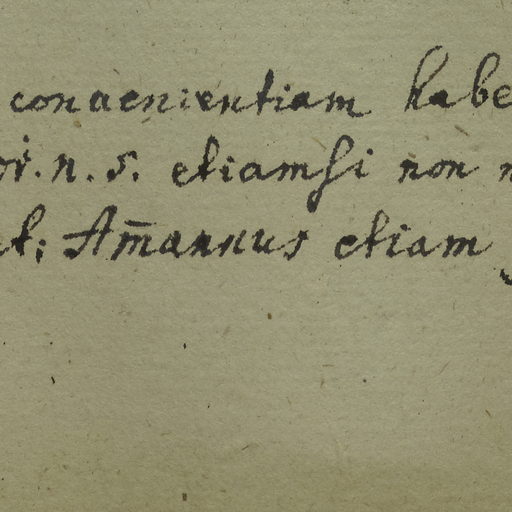 convenientiam habe
or. n. s. etiamsi non n
et; Am̄annus etiam